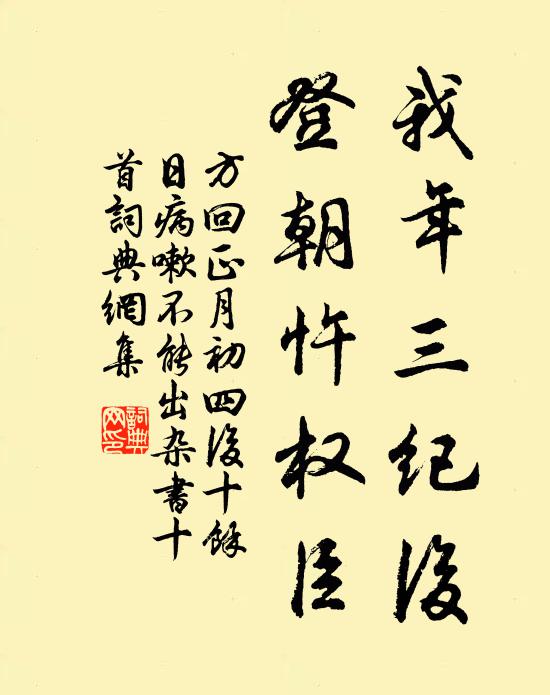 我年三纪後
登朝忤权臣
方回正月初四後十馀
日病嗽不能出杂书十
首词典網集
詞典
网印